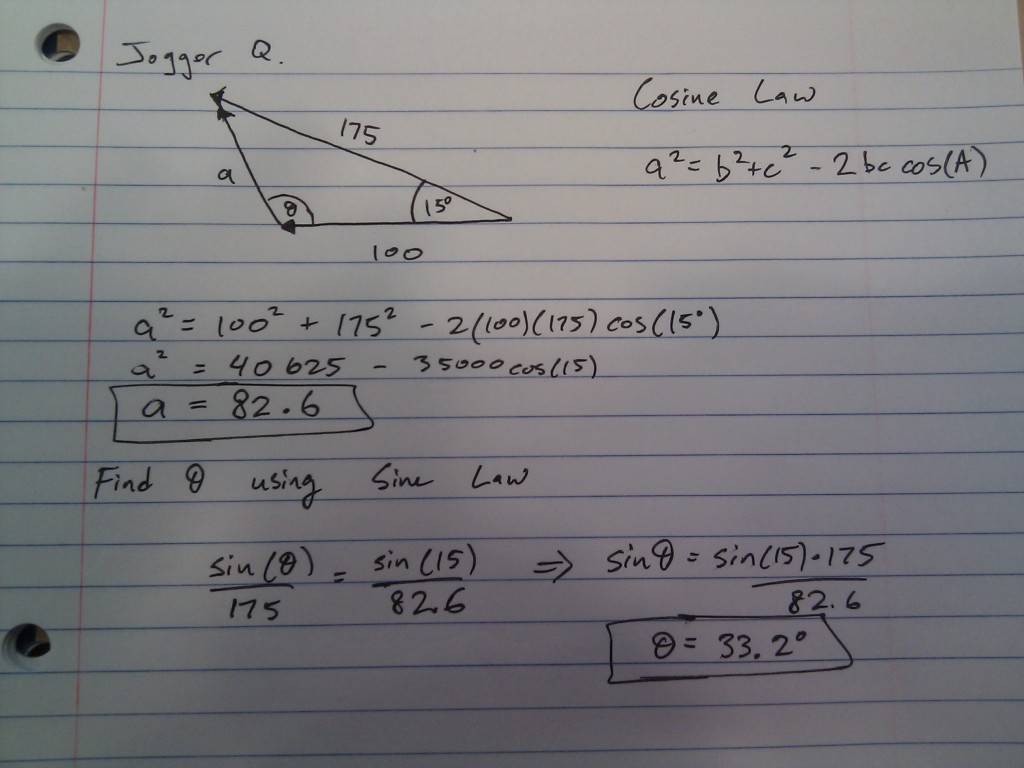 Jogger Q.
Cosine Law
175
a² = b²+c² - 2bc cos(A)
a
θ
15°
100
a² = 100² + 175² - 2(100)(175) cos(15°)
a² = 40625 - 35000 cos(15)
a = 82.6
Find θ using Sine Law
sin(θ)/175 = sin(15)/82.6 ⇒ sinθ = sin(15)·175/82.6
θ = 33.2°